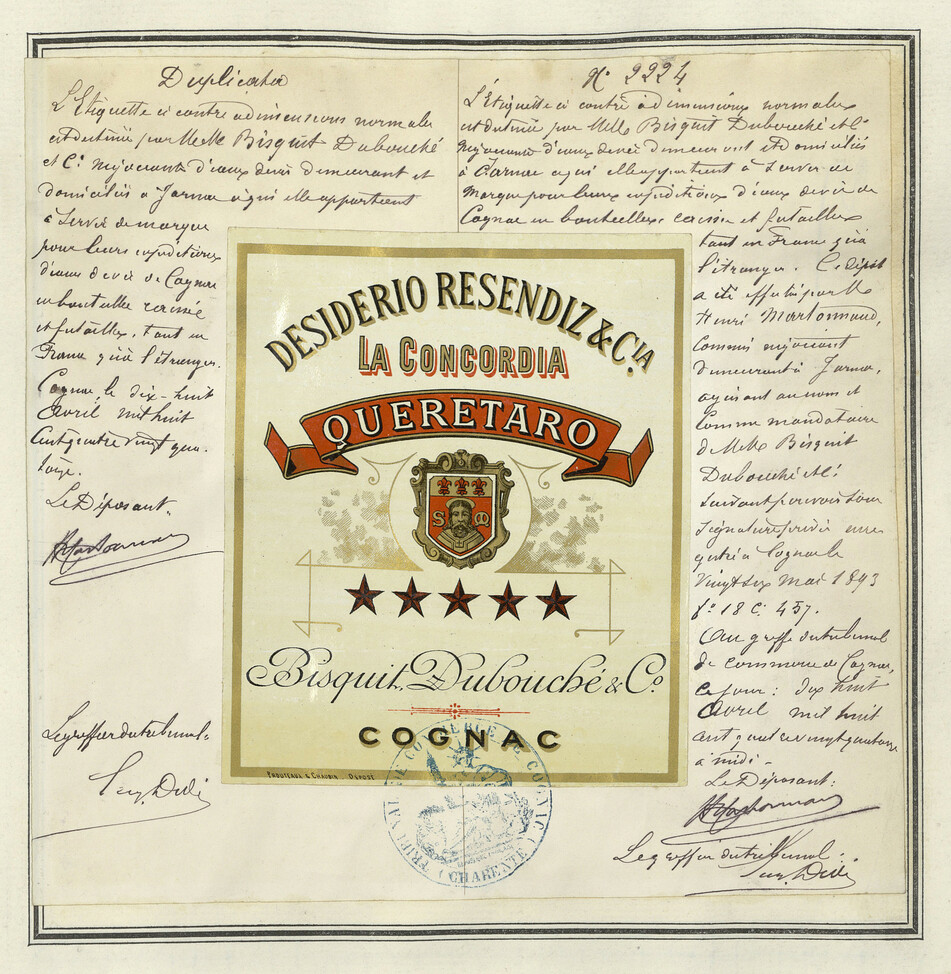 Duplicata
L'Etiquette ci contre a dimensions normales
est destinée par MM Bisquit Dubouché
et Cie négociants d'eaux de vie demeurant et
domiciliés à Jarnac à qui elle appartient
à servir de marque
pour leurs expéditions
d'eaux de vie de Cognac
en bouteilles caisses
et futailles, tant en
France qu'à l'étranger.
Cognac le dix-huit
Avril mil huit
cent quatre vingt qua-
torze.
Le Déposant:
Le greffier du tribunal:
N° 2224
L'Etiquette ci contre à dimensions normales
est destinée par MM Bisquit Dubouché et Cie
négociants d'eaux de vie demeurant et domiciliés
à Jarnac à qui elle appartient à servir de
marque pour leurs expéditions d'eaux de vie de
Cognac en bouteilles, caisses et futailles
tant en France qu'à
l'étranger. Ce dépôt
a été effectué par M
Henri Martonnaud,
Commis négociant
demeurant à Jarnac,
agissant au nom et
comme mandataire
de MM Bisquit
Dubouché et Cie
suivant pouvoir sous
signature privée enre-
gistré à Cognac le
vingt six Mai 1893
f° 18 C. 457.
Au greffe du tribunal
de commerce de Cognac,
ce jour: dix huit
Avril mil huit
cent quatre vingt quatorze
à midi -
Le Déposant:
Le greffier du tribunal:
DESIDERIO RESENDIZ & CIA.
LA CONCORDIA
QUERETARO
S M
Bisquit, Dubouché & Co.
COGNAC
TRIBUNAL DE COMMERCE DE COGNAC
(CHARENTE)